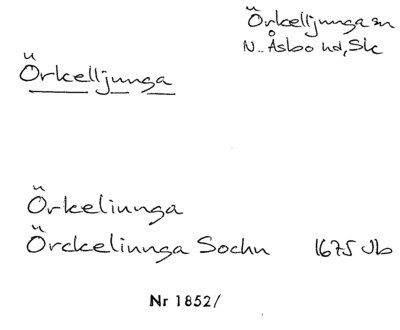 Örkelljunga sn
N. Åsbo hd, Sk
Örkelljunga
Örkeliunga
Örckeliunga Sochn 1675 Jb
Nr 1852/